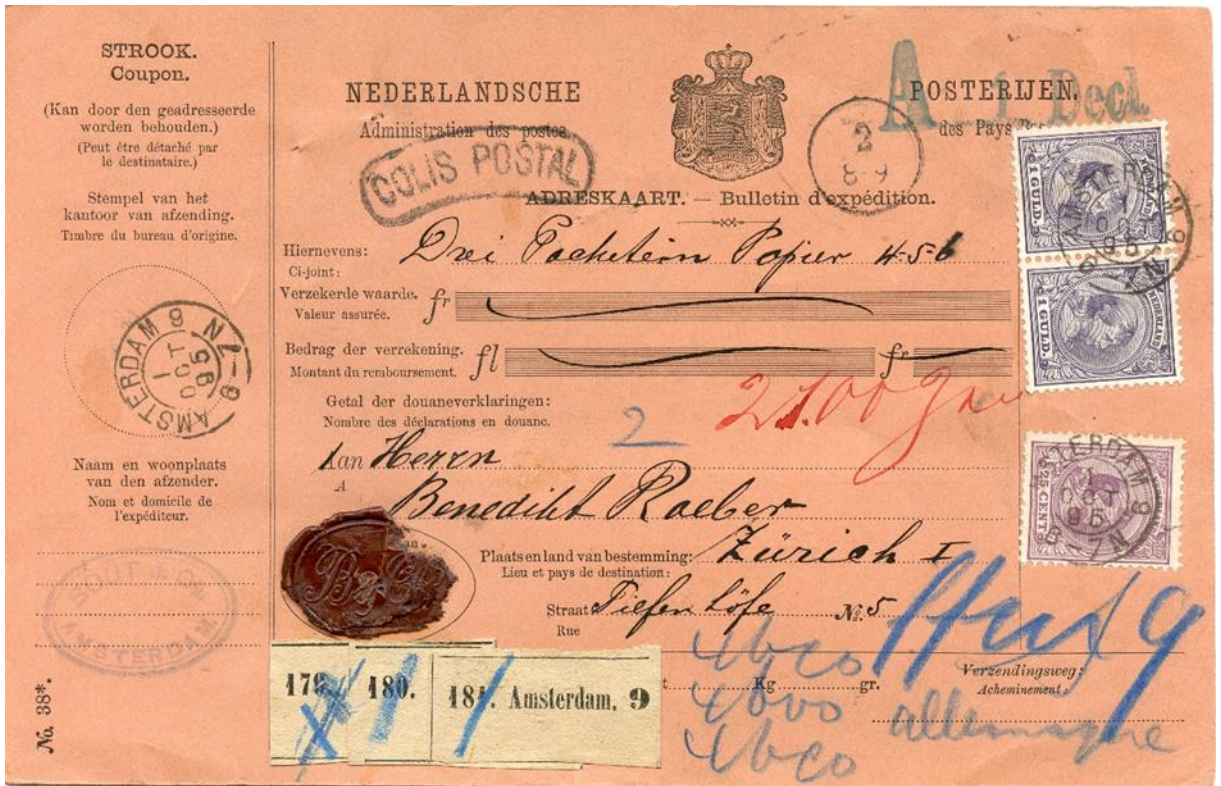 STROOK.
Coupon.
(Kan door den geadresseerde
worden behouden.)
(Peut être détaché par
le destinataire.)
Stempel van het
kantoor van afzending.
Timbre du bureau d'origine.
AMSTERDAM 9
1 OCT 95
6-7 N
Naam en woonplaats
van den afzender.
Nom et domicile de
l'expéditeur.
BOUT & Co.
AMSTERDAM
No. 38*.
NEDERLANDSCHE POSTERIJEN.
Administration des postes des Pays
COLIS POSTAL
2
8-9
A
ADRESKAART. — Bulletin d'expédition.
Hiernevens: Drei Packetein Papier 4-5-6
Ci-joint:
Verzekerde waarde. fr
Valeur assurée.
Bedrag der verrekening. fl fr
Montant du remboursement.
Getal der douaneverklaringen:
Nombre des déclarations en douane. 2
Aan Herrn
A
Benedikt Raeber
Plaats en land van bestemming: Zürich I
Lieu et pays de destination:
Straat Tiefen Höfe No. 5
Rue
Kg gr.
Verzendingsweg:
Acheminement:
allemagne
179. 180. 181. Amsterdam. 9
NEDERLAND
1 GULD.
NEDERLAND
1 GULD.
AMSTERDAM 9
1 OCT 95
25 CENT
AMSTERDAM 9
1 OCT 95